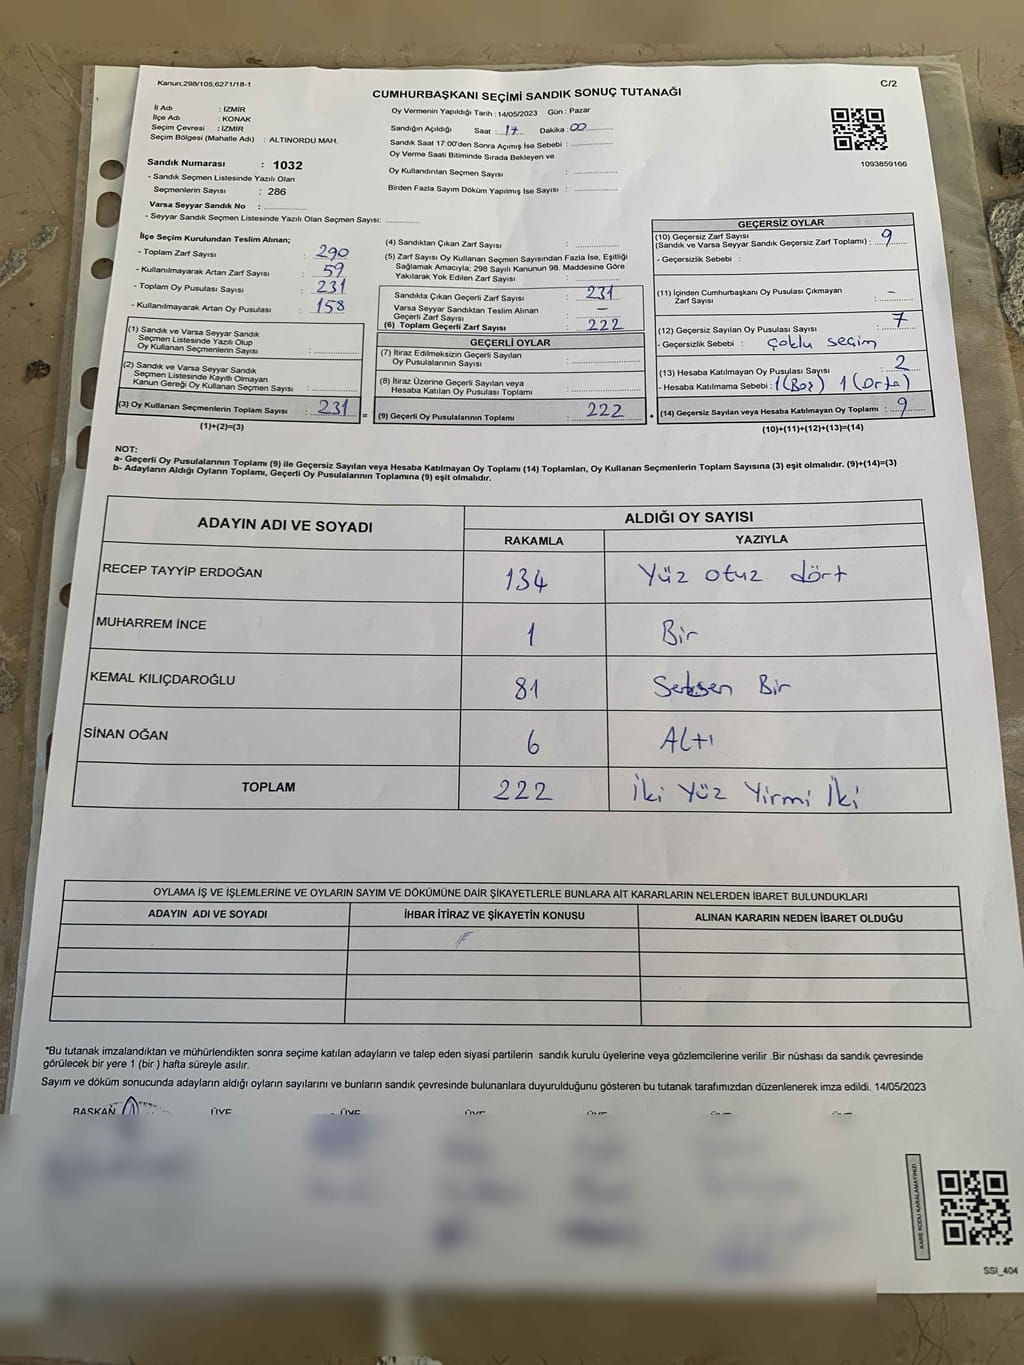 Kanun;298/105;6271/18-1
C/2
CUMHURBAŞKANI SEÇİMİ SANDIK SONUÇ TUTANAĞI
İl Adı : İZMİR
İlçe Adı : KONAK
Seçim Çevresi : İZMİR
Seçim Bölgesi (Mahalle Adı) : ALTINORDU MAH.
Oy Vermenin Yapıldığı Tarih : 14/05/2023 Gün : Pazar
Sandığın Açıldığı Saat : 17 Dakika : 00
Sandık Saat 17:00'den Sonra Açımış İse Sebebi :
Oy Verme Saati Bitiminde Sırada Bekleyen ve
Oy Kullandırılan Seçmen Sayısı :
Birden Fazla Sayım Döküm Yapılmış İse Sayısı :
1093859166
Sandık Numarası : 1032
- Sandık Seçmen Listesinde Yazılı Olan
Seçmenlerin Sayısı : 286
Varsa Seyyar Sandık No :
- Seyyar Sandık Seçmen Listesinde Yazılı Olan Seçmen Sayısı:
İlçe Seçim Kurulundan Teslim Alınan;
- Toplam Zarf Sayısı : 290
- Kullanılmayarak Artan Zarf Sayısı : 59
- Toplam Oy Pusulası Sayısı : 231
- Kullanılmayarak Artan Oy Pusulası : 158
(1) Sandık ve Varsa Seyyar Sandık
Seçmen Listesinde Yazılı Olup
Oy Kullanan Seçmenlerin Sayısı :
(2) Sandık ve Varsa Seyyar Sandık
Seçmen Listesinde Kayıtlı Olmayan
Kanun Gereği Oy Kullanan Seçmen Sayısı :
(3) Oy Kullanan Seçmenlerin Toplam Sayısı : 231 =
(1)+(2)=(3)
(4) Sandıktan Çıkan Zarf Sayısı :
(5) Zarf Sayısı Oy Kullanan Seçmen Sayısından Fazla İse, Eşitliği
Sağlamak Amacıyla; 298 Sayılı Kanunun 98. Maddesine Göre
Yakılarak Yok Edilen Zarf Sayısı :
Sandıkta Çıkan Geçerli Zarf Sayısı : 231
Varsa Seyyar Sandıktan Teslim Alınan
Geçerli Zarf Sayısı : —
(6) Toplam Geçerli Zarf Sayısı : 222
GEÇERLİ OYLAR
(7) İtiraz Edilmeksizin Geçerli Sayılan
Oy Pusulalarının Sayısı :
(8) İtiraz Üzerine Geçerli Sayılan veya
Hesaba Katılan Oy Pusulası Toplamı :
(9) Geçerli Oy Pusulalarının Toplamı : 222 +
GEÇERSİZ OYLAR
(10) Geçersiz Zarf Sayısı
(Sandık ve Varsa Seyyar Sandık Geçersiz Zarf Toplamı) : 9
- Geçersizlik Sebebi :
(11) İçinden Cumhurbaşkanı Oy Pusulası Çıkmayan
Zarf Sayısı : —
(12) Geçersiz Sayılan Oy Pusulası Sayısı : 7
- Geçersizlik Sebebi : çoklu seçim
(13) Hesaba Katılmayan Oy Pusulası Sayısı : 2
- Hesaba Katılmama Sebebi : 1(Boş) 1(Orta)
(14) Geçersiz Sayılan veya Hesaba Katılmayan Oy Toplamı : 9
(10)+(11)+(12)+(13)=(14)
NOT:
a- Geçerli Oy Pusulalarının Toplamı (9) ile Geçersiz Sayılan veya Hesaba Katılmayan Oy Toplamı (14) Toplamları, Oy Kullanan Seçmenlerin Toplam Sayısına (3) eşit olmalıdır. (9)+(14)=(3)
b- Adayların Aldığı Oyların Toplamı, Geçerli Oy Pusulalarının Toplamına (9) eşit olmalıdır.
ADAYIN ADI VE SOYADI
ALDIĞI OY SAYISI
RAKAMLA YAZIYLA
RECEP TAYYİP ERDOĞAN 134 Yüz otuz dört
MUHARREM İNCE 1 Bir
KEMAL KILIÇDAROĞLU 81 Seksen Bir
SİNAN OĞAN 6 Altı
TOPLAM 222 İki Yüz Yirmi İki
OYLAMA İŞ VE İŞLEMLERİNE VE OYLARIN SAYIM VE DÖKÜMÜNE DAİR ŞİKAYETLERLE BUNLARA AİT KARARLARIN NELERDEN İBARET BULUNDUKLARI
ADAYIN ADI VE SOYADI İHBAR İTİRAZ VE ŞİKAYETİN KONUSU ALINAN KARARIN NEDEN İBARET OLDUĞU
*Bu tutanak imzalandıktan ve mühürlendikten sonra seçime katılan adayların ve talep eden siyasi partilerin sandık kurulu üyelerine veya gözlemcilerine verilir .Bir nüshası da sandık çevresinde
görülecek bir yere 1 (bir ) hafta süreyle asılır.
Sayım ve döküm sonucunda adayların aldığı oyların sayılarını ve bunların sandık çevresinde bulunanlara duyurulduğunu gösteren bu tutanak tarafımızdan düzenlenerek imza edildi. 14/05/2023
BAŞKAN ÜYE ÜYE ÜYE ÜYE
KARE KODU KARALAMAYINIZ!
SSI_404